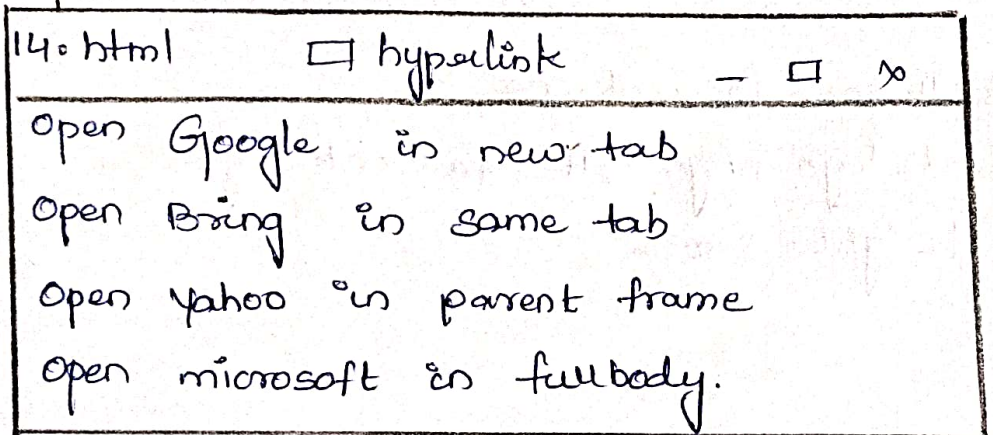 14. html hyperlink
Open Google in new tab
Open Bring in same tab
Open yahoo in parent frame
Open microsoft in fullbody.